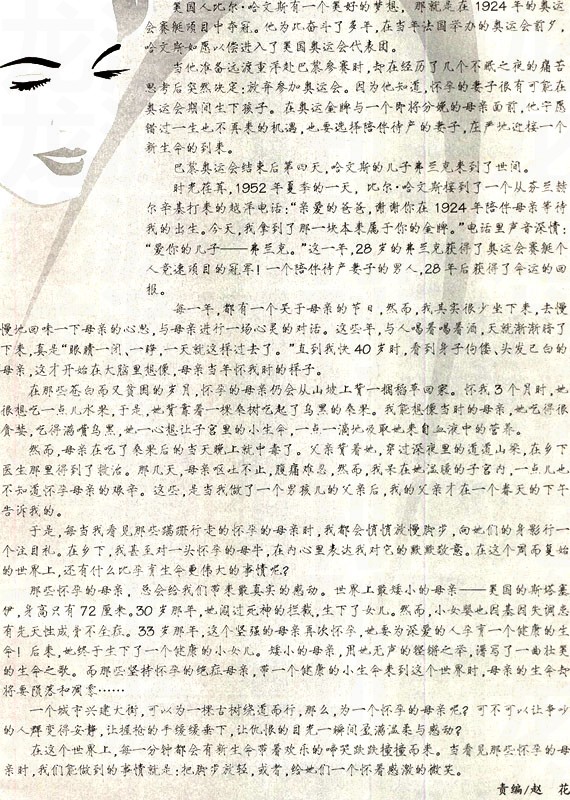 美国人比尔·哈文斯有一个美好的梦想，那就是在1924年的奥运
会赛艇项目中夺冠。他为此奋斗了多年，在当年法国举办的奥运会前夕，
哈文斯如愿以偿进入了美国奥运会代表团。
当他准备远渡重洋赴巴黎参赛时，却在经历了几个不眠之夜的痛苦
思考后突然决定：放弃参加奥运会。因为他知道，怀孕的妻子很有可能在
奥运会期间生下孩子。在奥运金牌与一个即将分娩的母亲面前，他宁愿
错过一生也不再来的机遇，也要选择陪伴待产的妻子，庄严地迎接一个
新生命的到来。
巴黎奥运会结束后第四天，哈文斯的儿子弗兰克来到了世间。
时光荏苒，1952年夏季的一天，比尔·哈文斯接到了一个从芬兰赫
尔辛基打来的越洋电话：“亲爱的爸爸，谢谢你在1924年陪伴母亲等待
我的出生。今天，我拿到了那一块本来属于你的金牌。”电话里声音深情：
“爱你的儿子——弗兰克。”这一年，28岁的弗兰克获得了奥运会赛艇个
人竞速项目的冠军！一个陪伴待产妻子的男人，28年后获得了命运的回
报。
每一年，都有一个关于母亲的节日，然而，我其实很少坐下来，去慢
慢地回味一下母亲的心思，与母亲进行一场心灵的对话。这些年，与人喝着喝着酒，天就渐渐暗了
下来，真是“眼睛一闭、一睁，一天就这样过去了。”直到我快40岁时，看到身子佝偻、头发已白的
母亲，这才开始在大脑里想像，母亲当年怀我时的样子。
在那些苍白而又贫困的岁月，怀孕的母亲仍会从山坡上背一捆稻草回家。怀我3个月时，她
很想吃一点儿水果，于是，她背靠着一棵桑树吃起了乌黑的桑果。我能想像当时的母亲，她吃得很
贪婪，吃得满嘴乌黑，她一心想让子宫里的小生命，一点一滴地吸取她来自血液中的营养。
然而，母亲在吃了桑果后的当天晚上就中毒了。父亲背着她，穿过深夜里的道道山梁，在乡下
医生那里得到了救治。那几天，母亲呕吐不止，腹痛难忍，然而，我呆在她温暖的子宫内，一点儿也
不知道怀孕母亲的艰辛。这些，是当我做了一个男孩儿的父亲后，我的父亲才在一个春天的下午
告诉我的。
于是，每当我看见那些蹒跚行走的怀孕的母亲时，我都会悄悄放慢脚步，向她们的身影行一
个注目礼。在乡下，我甚至对一头怀孕的母牛，在内心里表达我对它的默默敬意。在这个周而复始
的世界上，还有什么比孕育生命更伟大的事情呢？
那些怀孕的母亲，总会给我们带来最真实的感动。世界上最矮小的母亲——美国的斯塔塞
伊，身高只有72厘米。30岁那年，她闯过死神的拦截，生下了女儿。然而，小女婴也因基因失调患
有先天性成骨不全症。33岁那年，这个坚强的母亲再次怀孕，她要为深爱的人孕育一个健康的生
命！后来，她终于生下了一个健康的小女儿。矮小的母亲，用她无声的铿锵之举，谱写了一曲壮美
的生命之歌。而那些坚持怀孕的绝症母亲，带一个健康的小生命来到这个世界时，母亲的生命却
将要陨落和凋零……
一个城市兴建大街，可以为一棵古树绕道而行，那么，为一个怀孕的母亲呢？可不可以让争吵
的人群变得安静，让握枪的手缓缓垂下，让仇恨的目光一瞬间盈满温柔与感动？
在这个世界上，每一分钟都会有新生命带着欢乐的啼哭跌跌撞撞而来。当看见那些怀孕的母
亲时，我们能做到的事情就是：把脚步放轻，或者，给她们一个怀着感激的微笑。
责编/赵　花